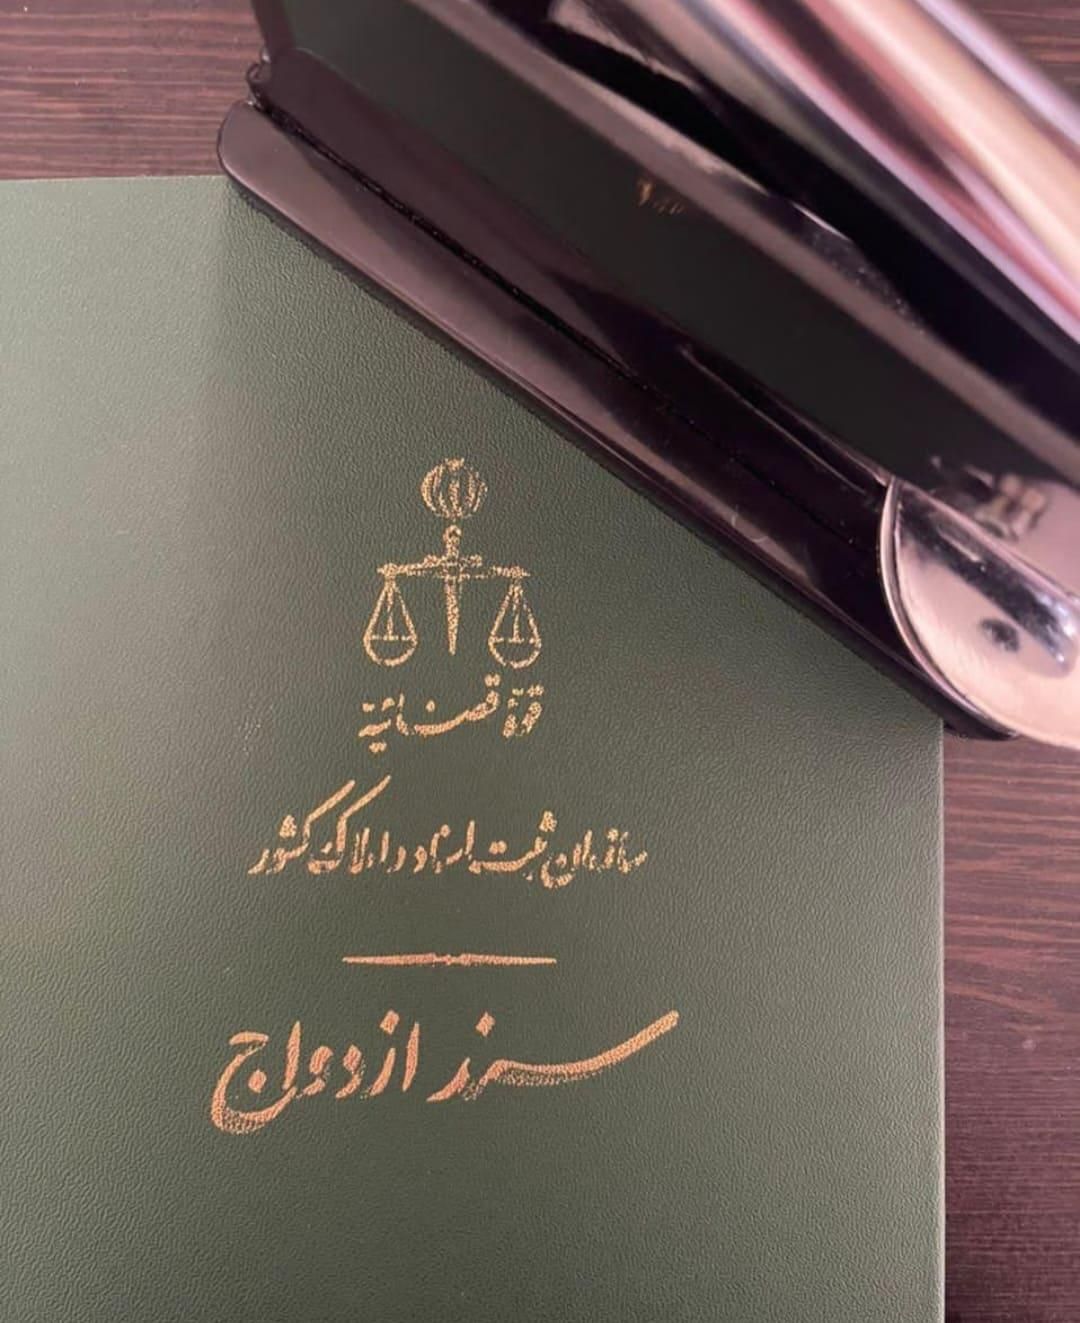 قوّهٔ قضائیّه
سازمان ثبت اسناد و املاک کشور
سند ازدواج